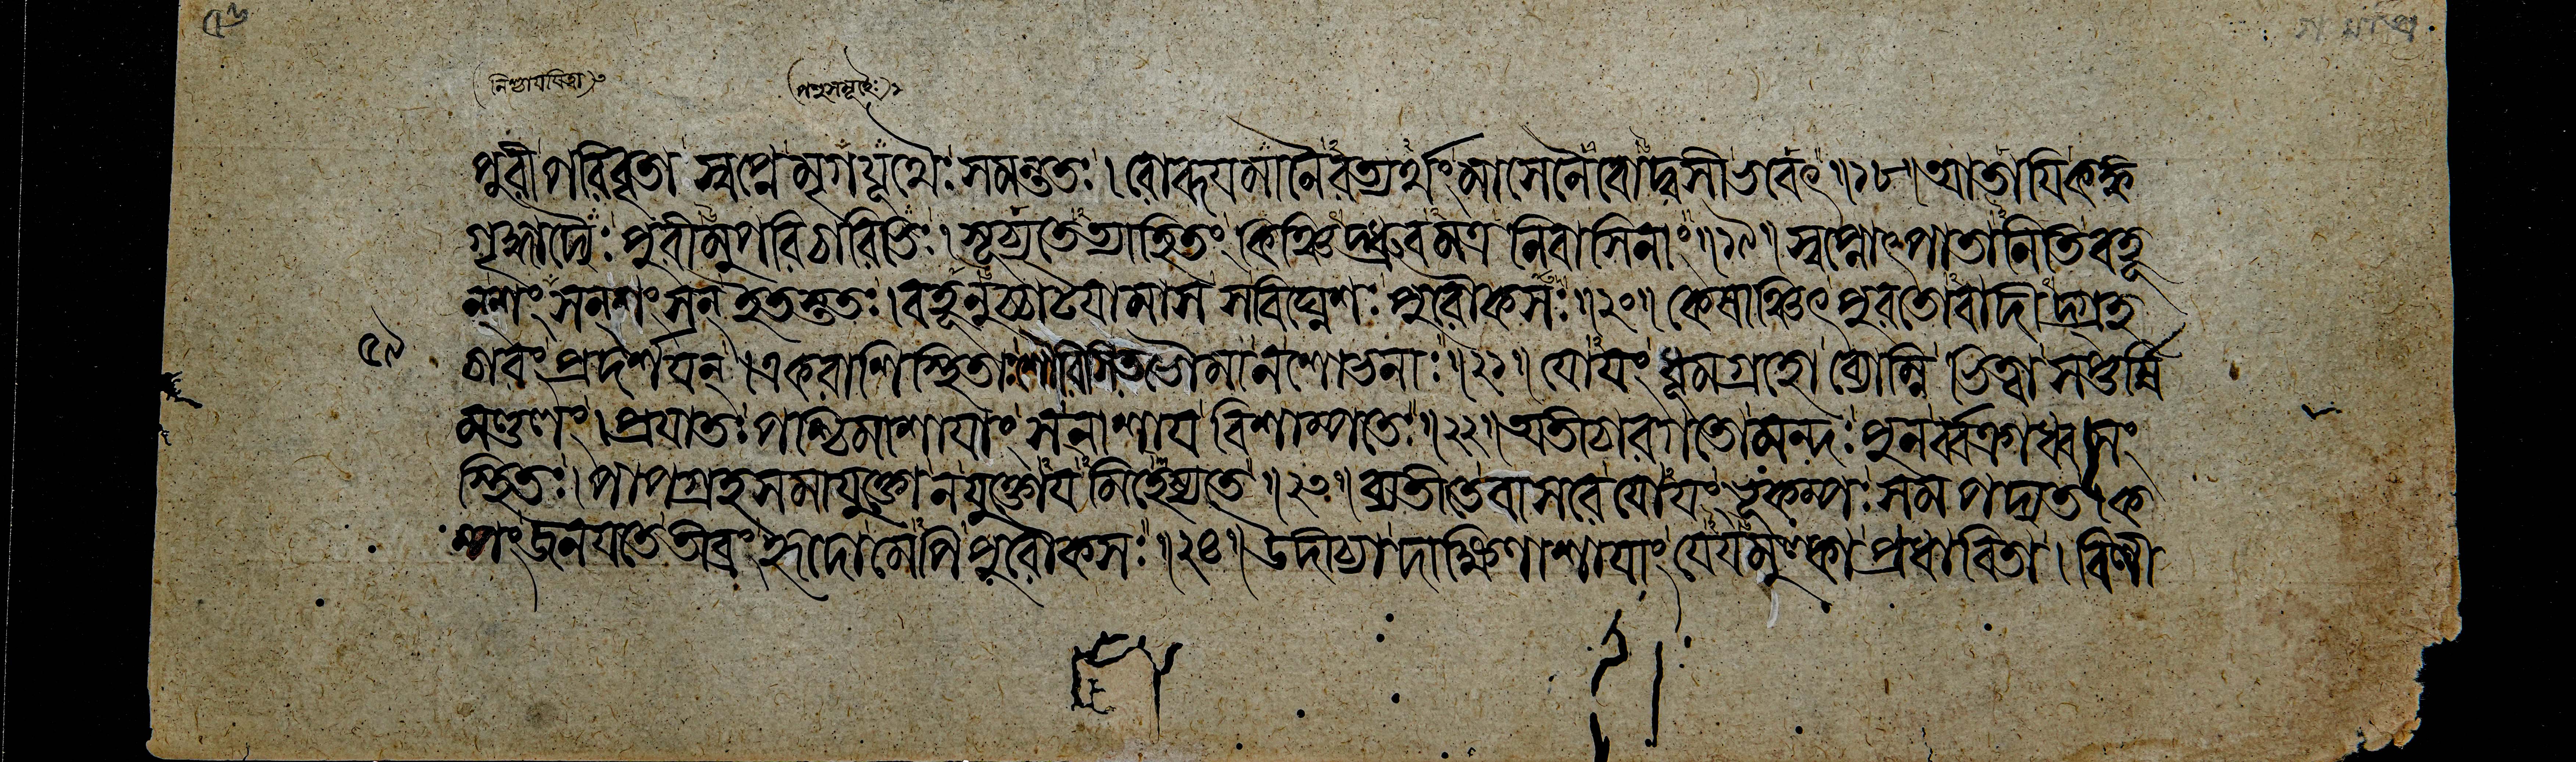 (নিশ্চাযযিত্বা)
(পশুসমূহৈঃ)
পুরীপরিবৃতা স্বপ্নে মৃগযূথৈঃ সমন্ততঃ। রোরূযমানৈরত্যর্থং মাসেনৈবোদ্বসীভবেৎ॥১৮॥ আতাযিকঙ্ক
গৃধ্রাদ্যৈঃ পুরীমুপরিচারিভিঃ। সূচ্যতেত্যাহিতং কিঞ্চিদ্ধ্রুবমত্র নিবাসিনাং॥১৯॥ স্বপ্নোৎপাতানিতি বহূ
ন্ শংসন্ শংসন্নিতস্ততঃ। বহূনুচ্চাটযামাস সবিঘ্নেশঃ পুরৌকসঃ॥২০॥ কেষাঞ্চিৎ পুরতোবাদীদ্গ্রহ
চারং প্রদর্শযন্। একরাশিস্থিতাঃ সৌরিসিতভৌমানশোভনাঃ॥২১॥ যোযং ধূমগ্রহো ব্যোম্নি ভিত্বা সপ্তর্ষি
৫৯
মণ্ডলং। প্রযাতঃ পশ্চিমাশাযাং সনাশায বিশাম্পতেঃ॥২২॥ অতীচারগতোমন্দঃ পুনর্ব্বক্রাধ্বসং
স্থিতঃ। পাপগ্রহসমাযুক্তোনযুক্তোযমিহেষ্যতে॥২৩॥ ব্যতীতে বাসরে যোযং ভূকম্পঃ সমপদ্যত। ক
ম্পং জনযতেতীব্রং হৃদোমেপি পুরৌকসঃ॥২৪॥ উদীচ্যাদ্দক্ষিণাশাযাং যেযমুল্কা প্রধাবিতা। বিলী